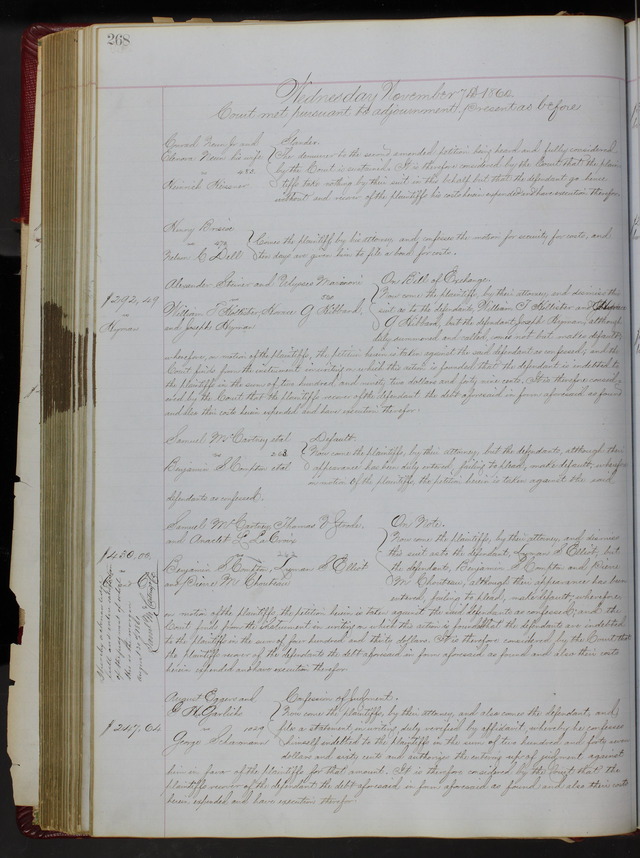 268
Wednesday November 7th 1860
Court met pursuant to adjournment. Present as before
Conrad and Slander.
his wife The demurrer to the second amended petition being heard and fully considered
by the Court is sustained. It is therefore considered by the Court that the plain-
Heinrich tiff take nothing by their suit in this behalf but that the defendant go hence
without and recover of the plaintiffs his costs herein expended and have execution therefor.
Henry
Comes the plaintiff by his attorney and confesses the motion for security for costs, and
Dell ten days are given him to file a bond for costs.
Alexander and Ulysses On Bill of Exchange.
$292.49 vs Now come the plaintiffs, by their attorney and dismiss their
William T. Hollister, Horace G. Hibbard, suit as to the defendants, William T. Hollister and
vs Ryman and Joseph Ryman G Hibbard, but the defendant Joseph Ryman, although
duly summoned and called, comes not but makes default;
wherefore, on motion of the plaintiffs, the petition herein is taken against the said defendant as confessed; and the
Court finds from the instrument in writing on which this action is founded that the defendant is indebted to
the plaintiffs in the sum of two hundred and ninety two dollars and forty nine cents. It is therefore consid-
ered by the Court that the plaintiffs recover of the defendant the debt aforesaid in form aforesaid as found
and also their costs herein expended and have execution therefor.
Samuel McCartney et al Default.
vs 253 Now come the plaintiffs, by their attorney, but the defendants, although their
Benjamin S. Compton et al appearance has been duly entered, failing to plead, make default; wherefore
on motion of the plaintiffs, the petition herein is taken against the said
defendants as confessed.
Samuel McCartney, Thomas On Note.
and Anaclet L. LaCroix Now come the plaintiffs, by their attorney, and dismiss
$430.00 this suit as to the defendant, Lyman S Elliott, but
Benjamin S. Compton, Lyman S Elliott the defendants, Benjamin S. Compton and Pierre
and Pierre M. Chouteau M. Chouteau, although their appearance has been
entered, failing to plead, make default; wherefore,
on motion of the plaintiffs, the petition herein is taken against the said defendants as confessed; and the
Court finds from the statement in writing on which the action is founded that the defendants are indebted
to the plaintiffs in the sum of four hundred and thirty dollars. It is therefore considered by the Court that
the plaintiffs recover of the defendants the debt aforesaid in form aforesaid as found and also their costs
herein expended and have execution therefor
August Eggers and Confession of Judgment.
H. Garlichs Now come the plaintiffs, by their attorney, and also comes the defendant, and
$247.64 vs 1029 files a statement in writing, duly verified by affidavit, whereby he confesses
George Scharmann himself indebted to the plaintiffs in the sum of two hundred and forty seven
dollars and sixty cents and authorizes the entering up of judgment against
him in favor of the plaintiffs for that amount. It is therefore considered by the Court that the
plaintiffs recover of the defendant the debt aforesaid in form aforesaid as found and also their costs
herein expended and have execution therefor